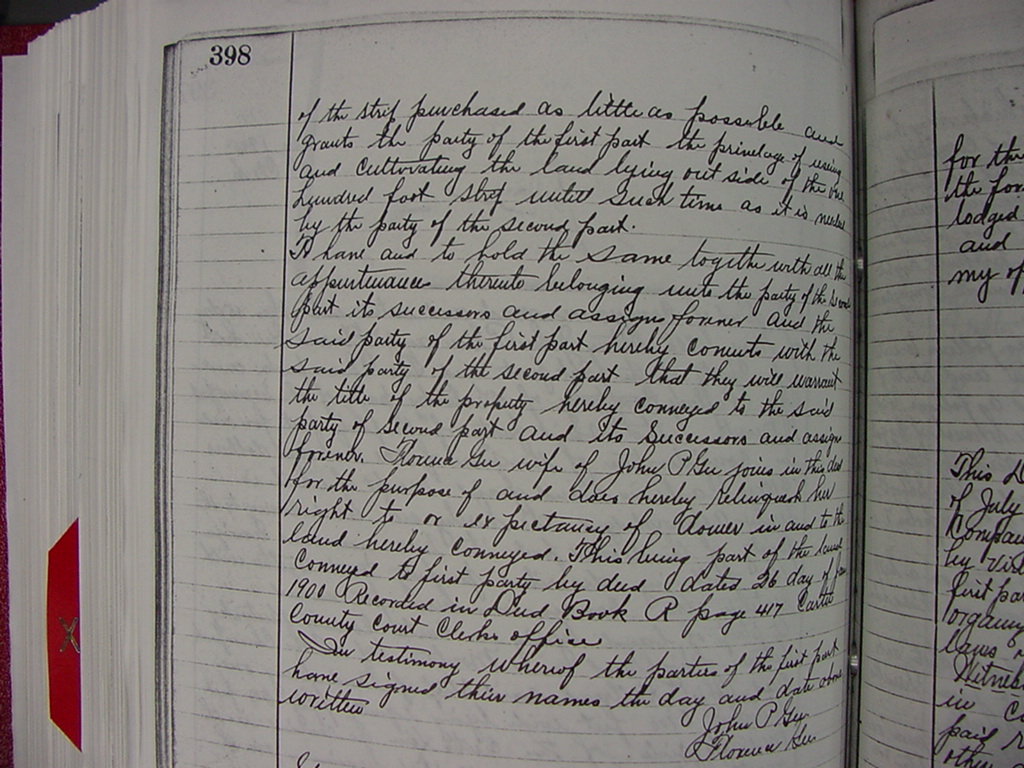 398
of the strip purchased as little as possible and
grants the party of the first part the privelage of using
and cultivating the land lying out side of the one
hundred foot strip until such time as it is needed
by the party of the second part.
To have and to hold the same together with all the
appurtenances thereto belonging unto the party of the second
part its successors and assigns forever and the
said party of the first part hereby covenants with the
said party of the second part that they will warrant
the title of the property hereby conveyed to the said
party of second part and its Successors and assign
forever. Florence Gee wife of John P Gee joins in this deed
for the purpose of and does hereby relinquish her
right to or expectancy of dower in and to the
land hereby conveyed. This being part of the land
conveyed to first party by deed dated 26 day of
1900 Recorded in Deed Book R page 417 Carter
County Court Clerks office
In testimony whereof the parties of the first part
have signed their names the day and date above
written
John P Gee
Florence Gee
for the
the for
lodged
and
my of
This D
of July
Compan
by vir
first par
organiz
laws
Witnes
in Co
paid
other